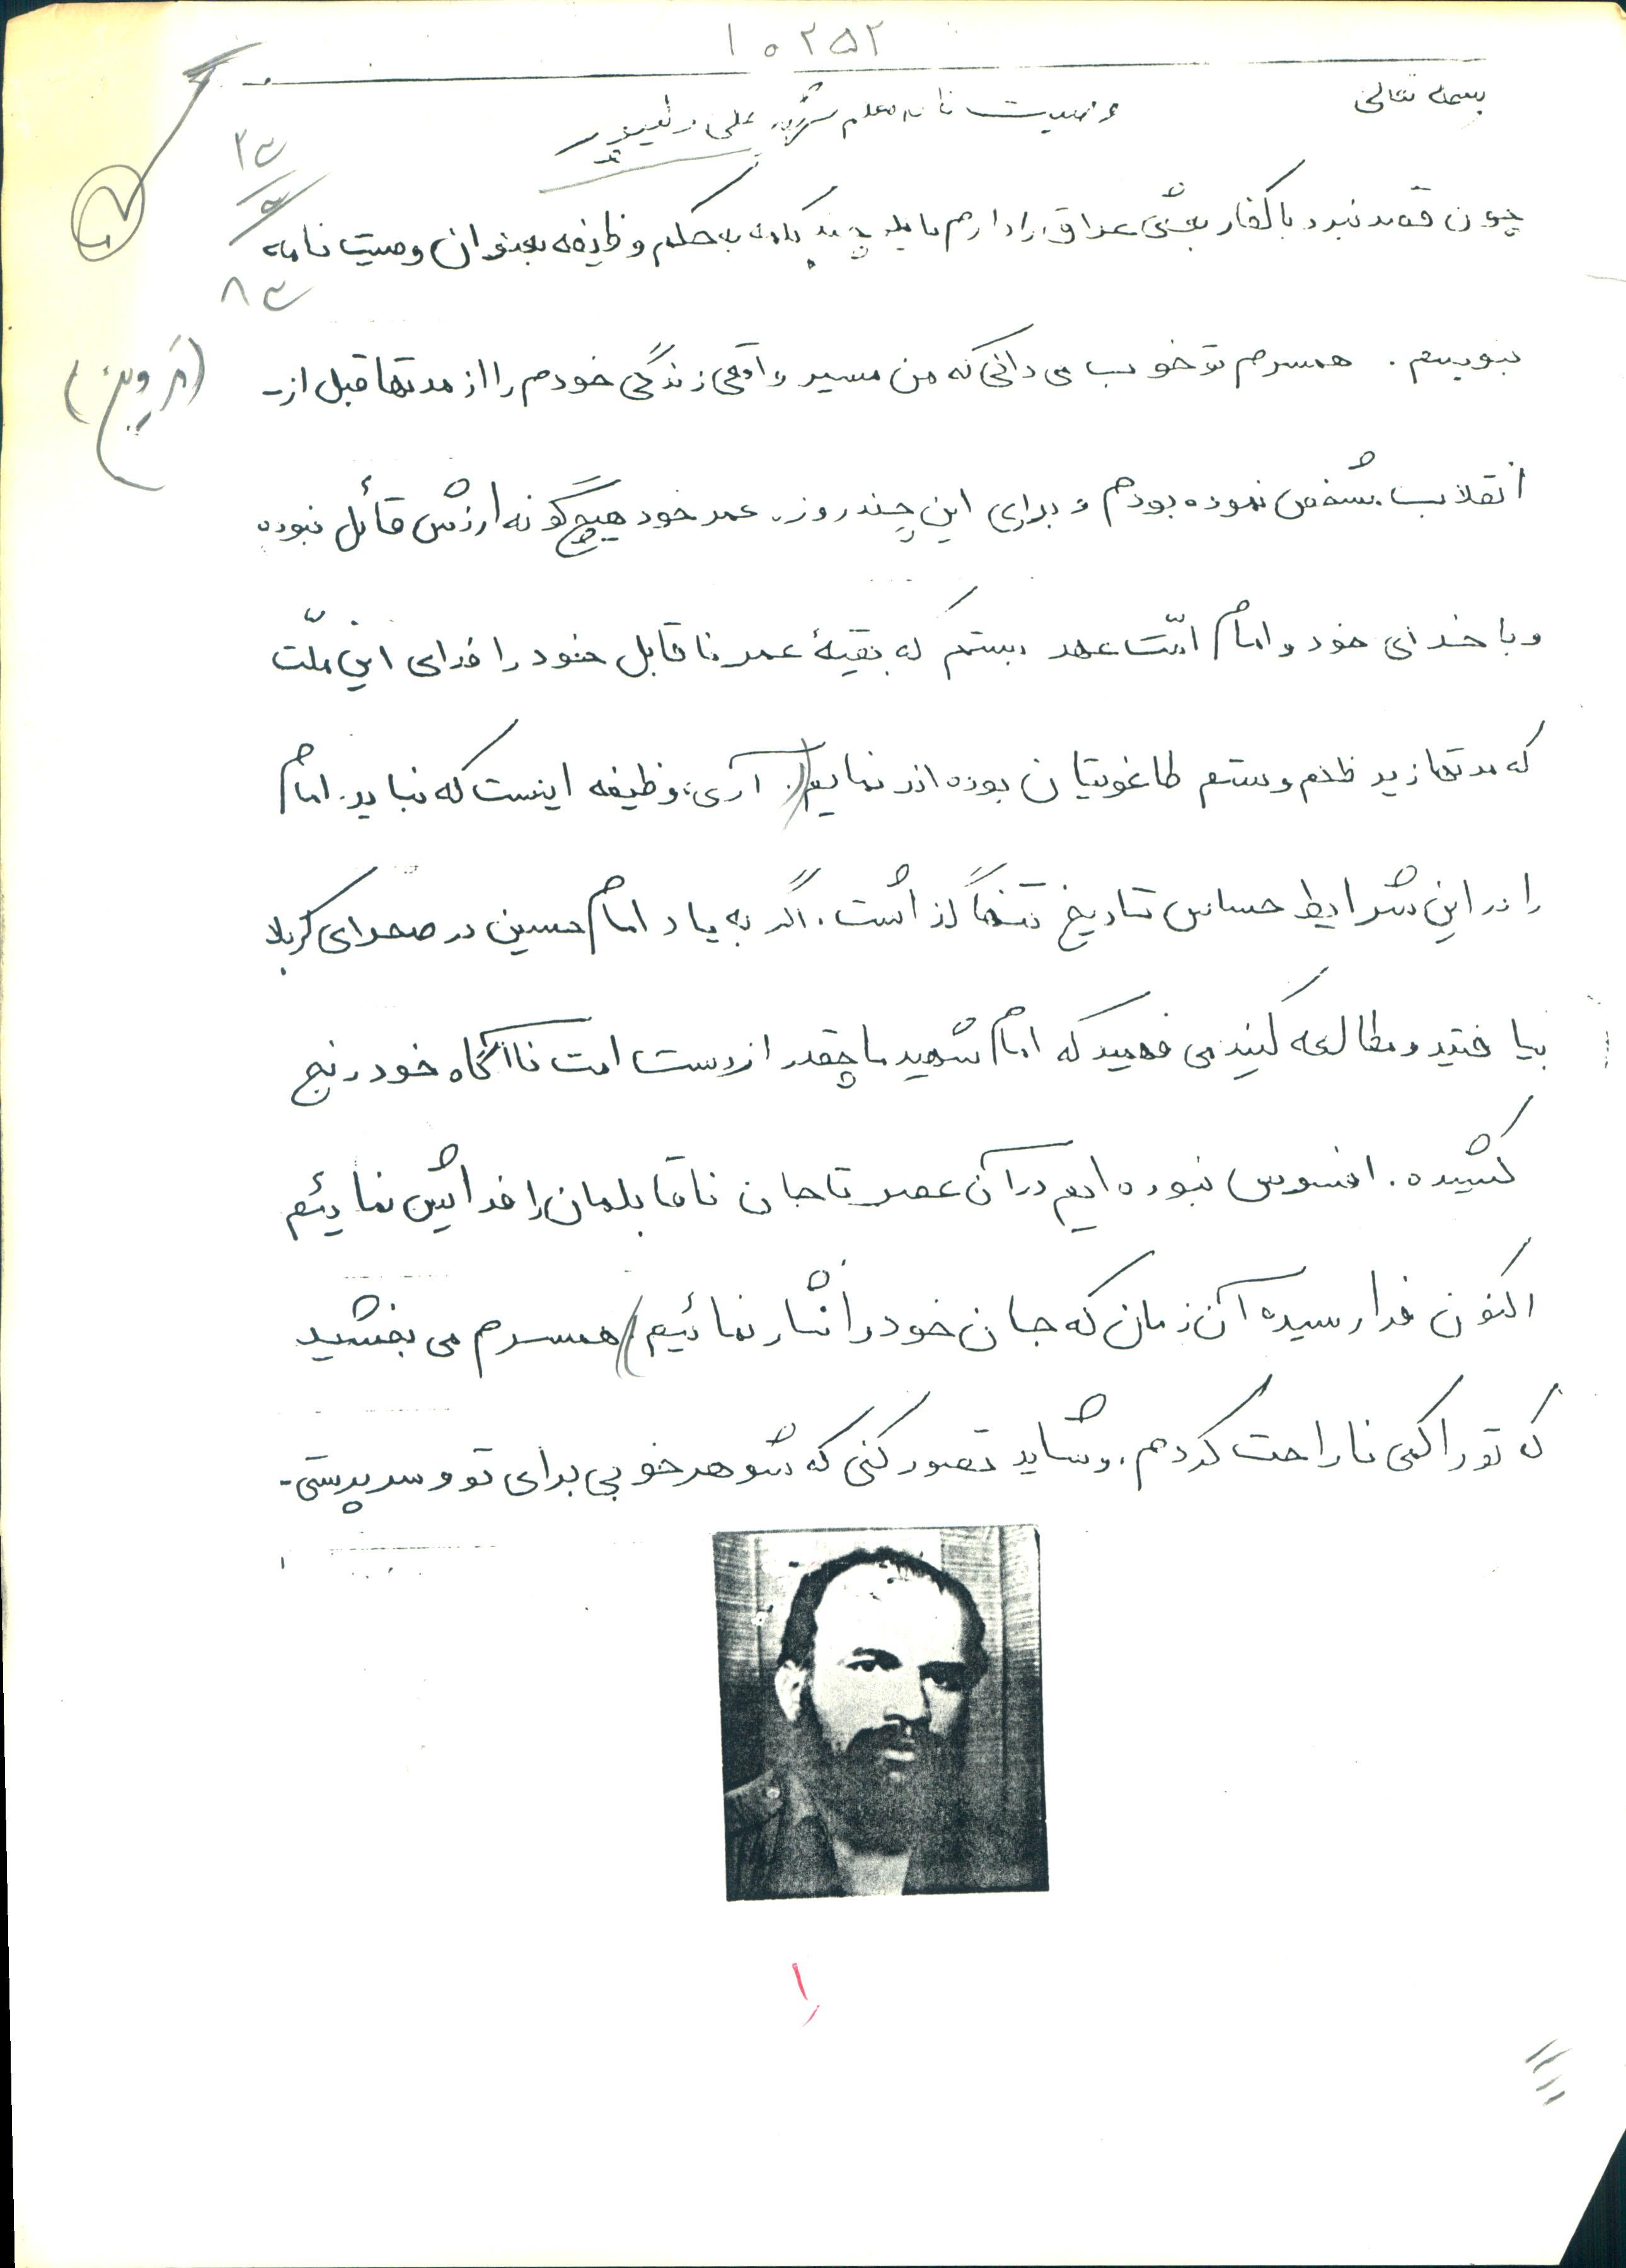 ۱۰۲۵۲
بسمه تعالی
وصیت نامه معلم شهید علی
چون قصد نبرد با کفار بعثی عراق را دارم باید چند کلمه به حکم وظیفه بعنوان وصیت نامه
بنویسم. همسرم تو خوب می دانی که من مسیر واقعی زندگی خودم را از مدتها قبل از-
انقلاب مشخص نموده بودم و برای این چند روز عمر خود هیچ گونه ارزش قائل نبوده
و با خدای خود و امام امّت عهد بستم که بقیهٔ عمر ناقابل خود را فدای این ملّت
که مدتها زیر ظلم و ستم طاغوتیان بوده اند نمایم. آری، وظیفه اینست که نباید امام
را در این شرایط حساس تاریخ تنها گذاشت. اگر به یاد امام حسین در صحرای کربلا
بیافتید و مطالعه کنید می فهمید که امام شهید ما چقدر از دست امت ناآگاه خود رنج
کشیده. افسوس نبوده ایم در آن عصر تا جان ناقابلمان را فدائیش نمائیم
اکنون فرا رسیده آن زمان که جان خود را نثار نمائیم) همسرم می بخشید
که تو را کمی ناراحت کردم، و شاید تصور کنی که شوهر خوبی برای تو و سرپرستی-
۱